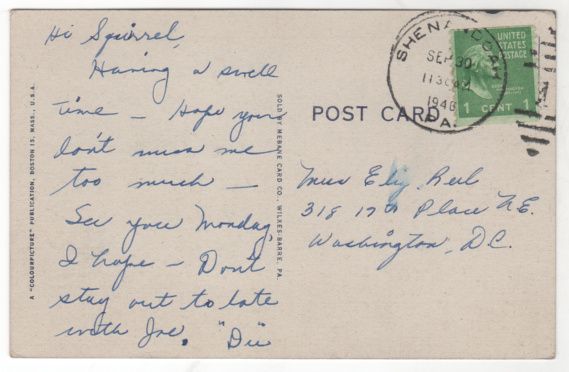 Hi Squirrel,
Having a swell
time – Hope you
don't miss me
too much –
See you Monday,
I hope – Don't
stay out to late
with Joe. "Du"
A "COLOURPICTURE" PUBLICATION, BOSTON 15, MASS., U.S.A.
SOLD BY MEBANE CARD CO., WILKES-BARRE, PA.
POST CARD
SHENANDOAH
SEP 30
1948
PA.
UNITED
STATES
POSTAGE
1 CENT 1
Miss Eliz.
318 17th Place N.E.
Washington, D.C.